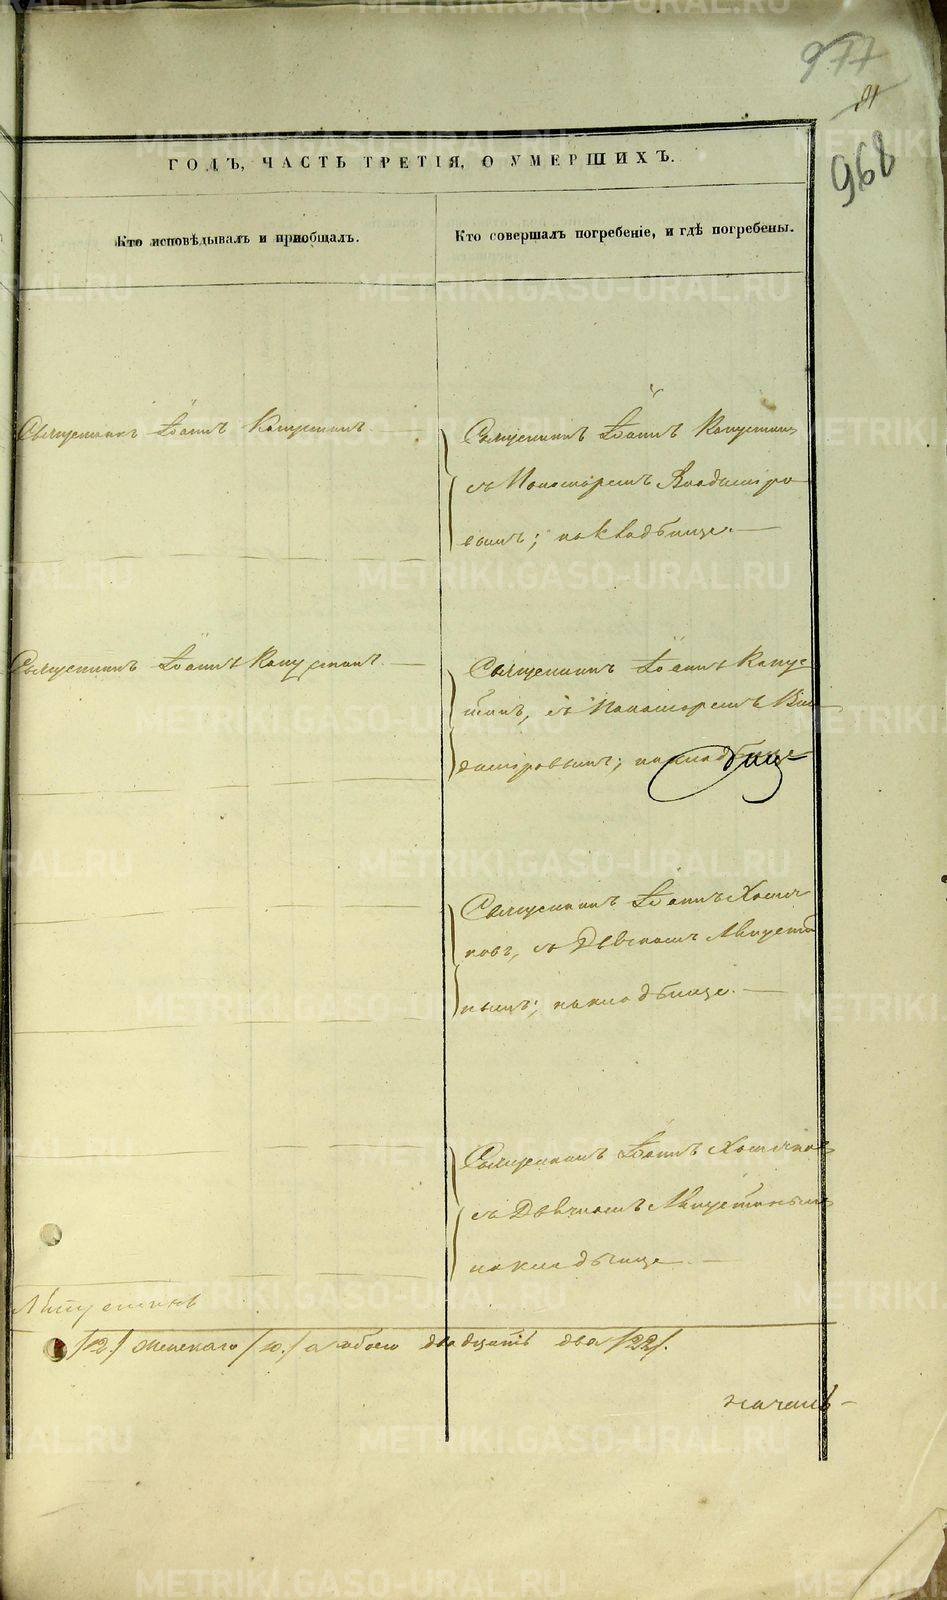 977
968
ГОДЪ, ЧАСТЬ ТРЕТІЯ, О УМЕРШИХЪ.
Кто исповѣдывалъ и пріобщалъ.
Кто совершалъ погребеніе, и гдѣ погребены.
Священникъ Іоаннъ Капустинъ.
Священникъ Іоаннъ Капустинъ
съ Пономаремъ Владиміро
вымъ; на кладбище.
Священникъ Іоаннъ Капустинъ.
Священникъ Іоаннъ Капус
тинъ, съ Пономаремъ Вла
диміровымъ; на кладбище
Священникъ Іоаннъ Хомя
ковъ, съ Дьячкомъ
нымъ; на кладбище.
Священникъ Іоаннъ Хомяковъ
съ Дьячкомъ
на кладбище.
/12./ женскаго /10./ а обоего двадцать два /22/.
METRIKI.GASO-URAL.RU